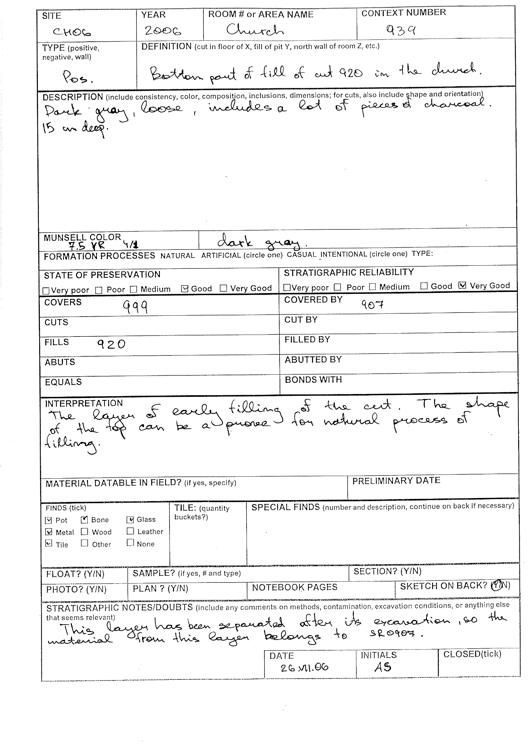 SITE YEAR ROOM # or AREA NAME CONTEXT NUMBER
CH06 2006 Church 939
TYPE (positive, negative, wall) DEFINITION (cut in floor of X, fill of pit Y, north wall of room Z, etc.)
Pos. Bottom part of fill of cut 920 in the church.
DESCRIPTION (include consistency, color, composition, inclusions, dimensions; for cuts, also include shape and orientation)
Dark gray, loose, includes a lot of pieces of charcoal.
15 cm deep.
MUNSELL COLOR
7.5 YR 4/1 dark gray.
FORMATION PROCESSES NATURAL ARTIFICIAL (circle one) CASUAL INTENTIONAL (circle one) TYPE:
STATE OF PRESERVATION STRATIGRAPHIC RELIABILITY
Very poor Poor Medium Good Very Good Very poor Poor Medium Good Very Good
COVERS 999 COVERED BY 907
CUTS CUT BY
FILLS 920 FILLED BY
ABUTS ABUTTED BY
EQUALS BONDS WITH
INTERPRETATION
The layer of early filling of the cut. The shape
of the top can be a for natural process of
filling.
MATERIAL DATABLE IN FIELD? (if yes, specify) PRELIMINARY DATE
FINDS (tick) TILE: (quantity buckets?) SPECIAL FINDS (number and description, continue on back if necessary)
Pot Bone Glass
Metal Wood Leather
Tile Other None
FLOAT? (Y/N) SAMPLE? (if yes, # and type) SECTION? (Y/N)
PHOTO? (Y/N) PLAN ? (Y/N) NOTEBOOK PAGES SKETCH ON BACK? (Y/N)
STRATIGRAPHIC NOTES/DOUBTS (include any comments on methods, contamination, excavation conditions, or anything else
that seems relevant)
This layer has been separated after its excavation, so the
material from this layer belongs to SR0907.
DATE INITIALS CLOSED(tick)
26.VII.06 AS